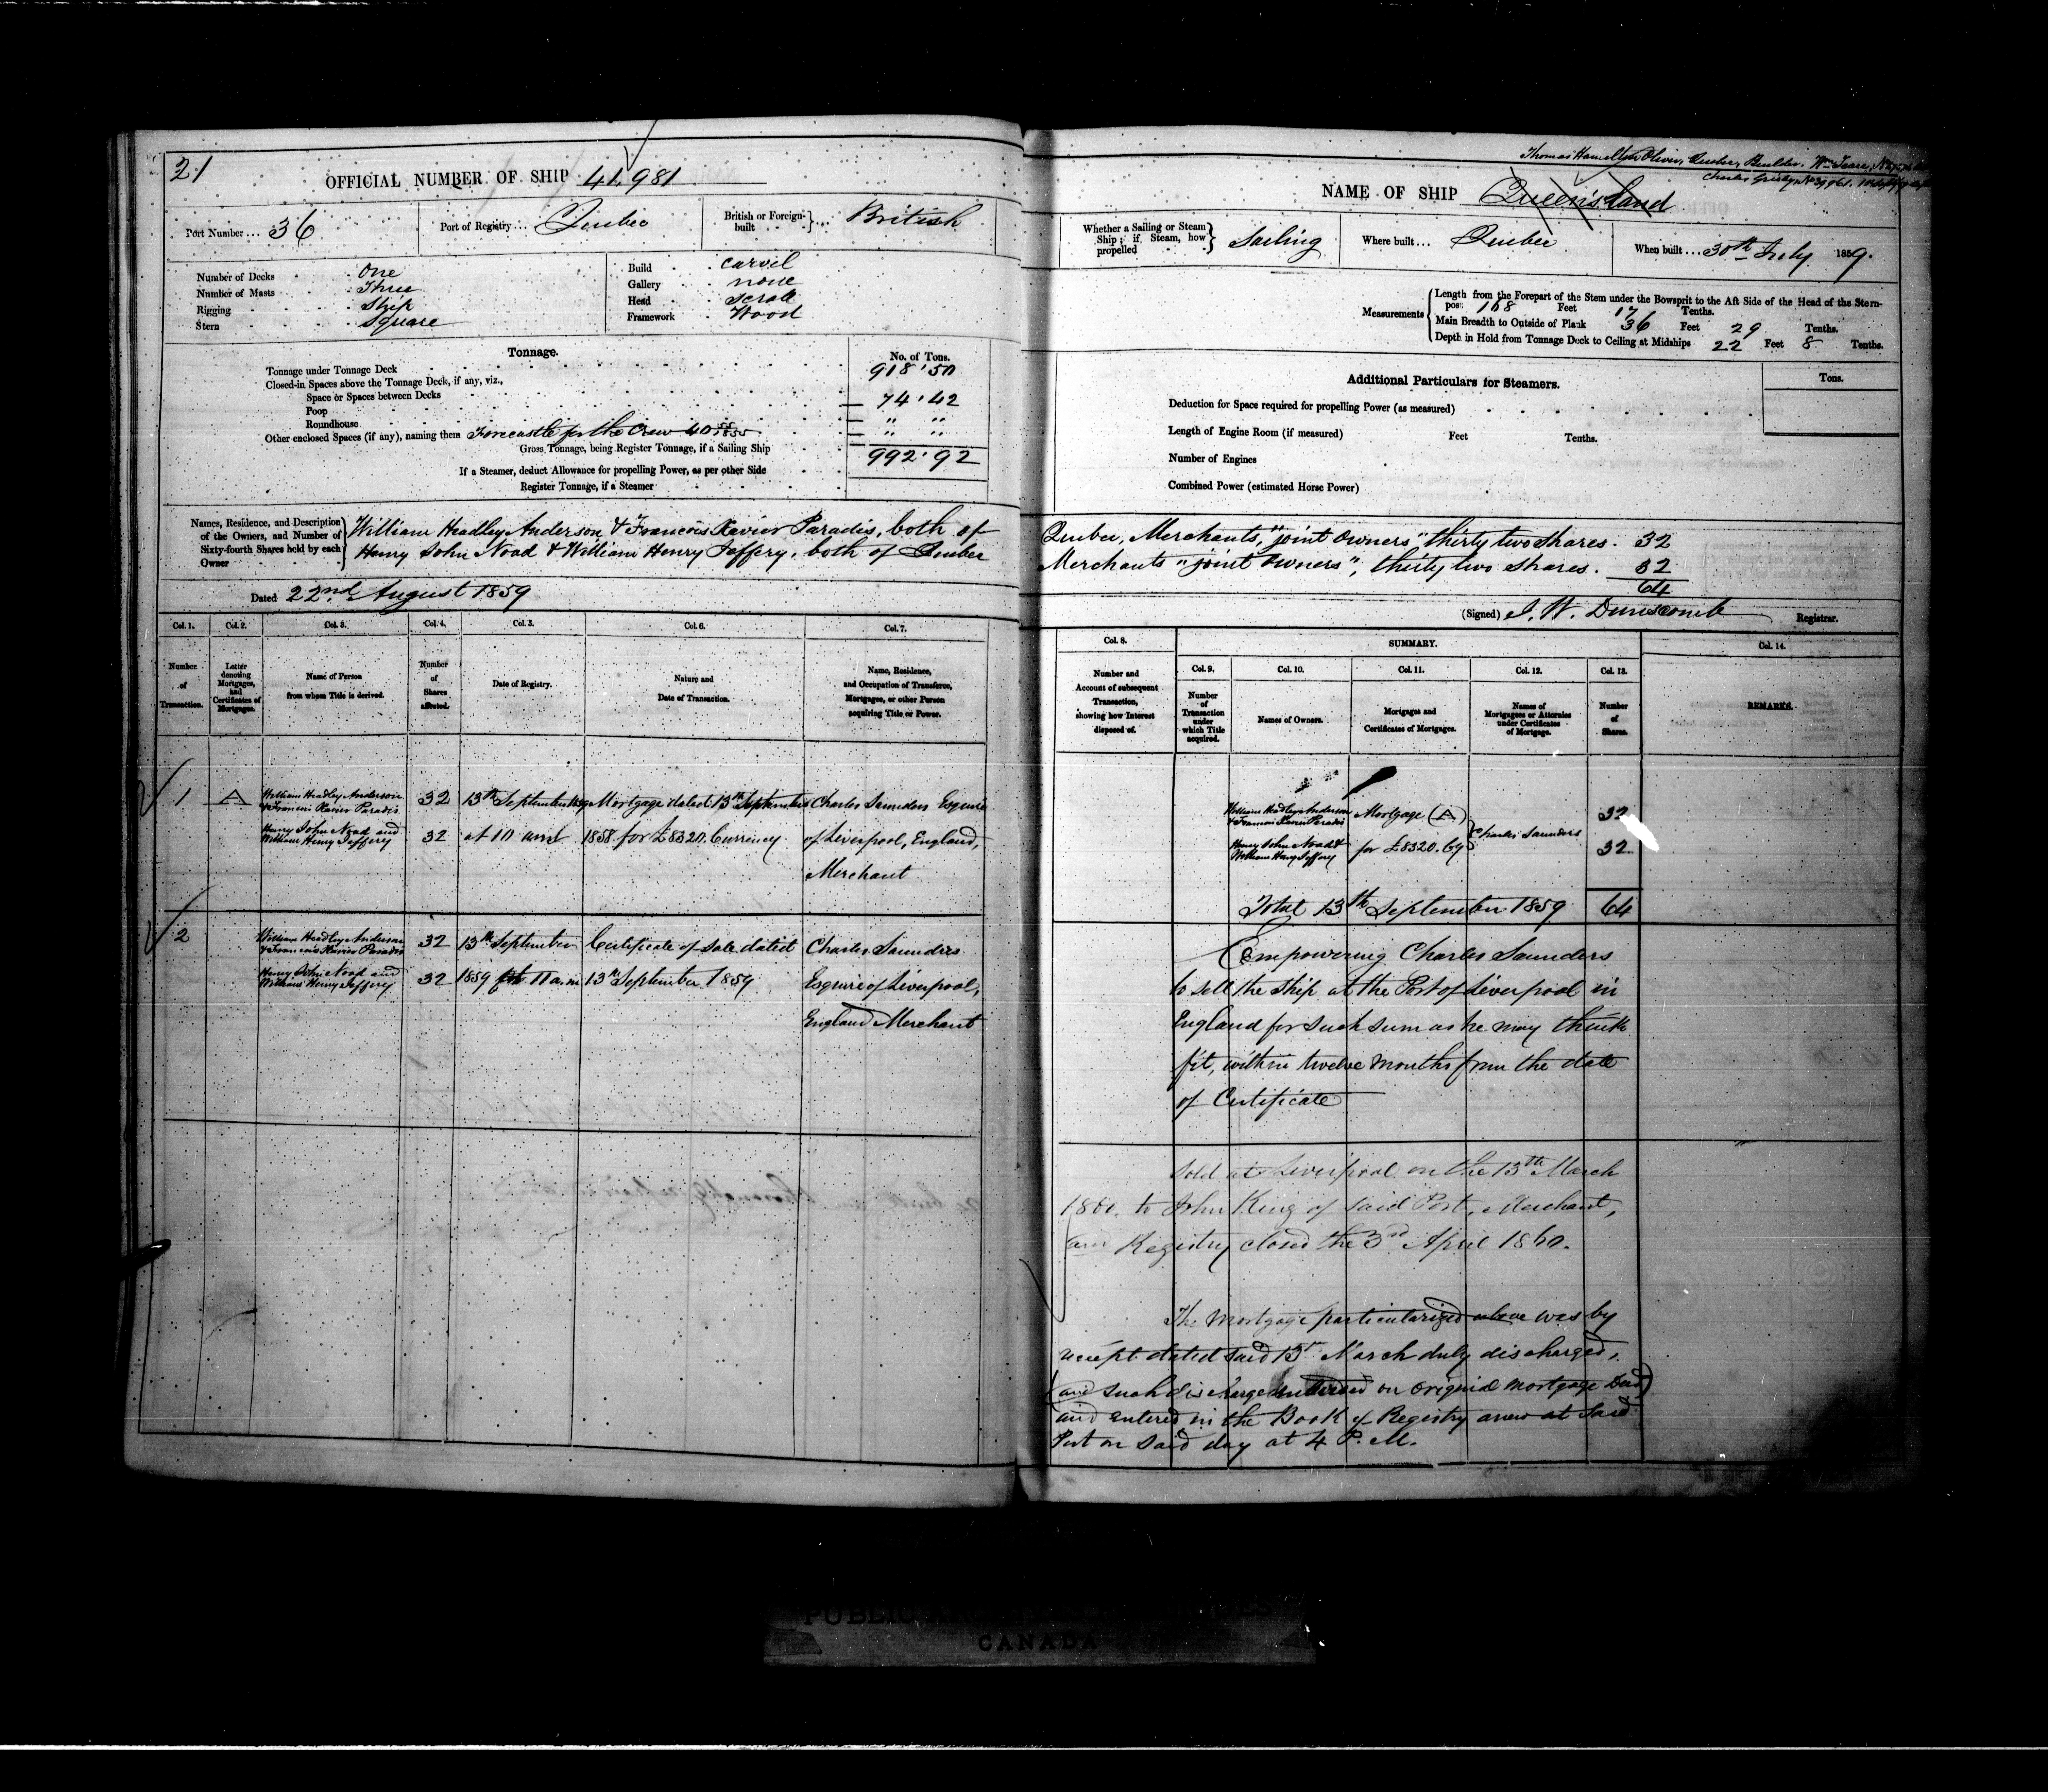 21
OFFICIAL NUMBER OF SHIP 41,981
Port Number... 36
Port of Registry... Quebec
British or Foreign-built } ... British
Number of Decks One
Number of Masts Three
Rigging Ship
Stern Square
Build Carvel
Gallery none
Head Scroll
Framework Wood
Tonnage. No. of Tons.
Tonnage under Tonnage Deck 918.50
Closed-in Spaces above the Tonnage Deck, if any, viz.,
Space or Spaces between Decks 74.42
Poop
Roundhouse " "
Other enclosed Spaces (if any), naming them Forecastle for the Crew 40
Gross Tonnage, being Register Tonnage, if a Sailing Ship 992.92
If a Steamer, deduct Allowance for propelling Power, as per other Side
Register Tonnage, if a Steamer
Names, Residence, and Description of the Owners, and Number of Sixty-fourth Shares held by each Owner
William Headley Anderson & Francois Xavier Paradis, both of
Henry John Noad & William Henry Jeffery, both of Quebec
Dated 22nd August 1859
Col. 1. Col. 2. Col. 3. Col. 4. Col. 5. Col. 6. Col. 7.
Number of Transaction.
Letter denoting Mortgages, and Certificates of Mortgages.
Name of Person from whom Title is derived.
Number of Shares affected.
Date of Registry.
Nature and Date of Transaction.
Name, Residence, and Occupation of Transferee, Mortgagee, or other Person acquiring Title or Power.
1 A
William Headley Anderson
& Francois Xavier Paradis 32
Henry John Noad and
William Henry Jeffery 32
13th September 1859
at 10 am
Mortgage dated 13th September
1858 for £8320. Currency
Charles Saunders Esquire
of Liverpool, England,
Merchant
2
William Headley Anderson
& Francois Xavier Paradis 32
Henry John Noad and
William Henry Jeffery 32
13th September
1859 11 a.m
Certificate of Sale dated
13th September 1859
Charles Saunders
Esquire of Liverpool,
England Merchant
Thomas Hamilton Oliver, Quebec, Builder. Wm Teare,
Charles Grisby, No 39961.
NAME OF SHIP Queensland
Whether a Sailing or Steam Ship; if Steam, how propelled } Sailing
Where built... Quebec
When built... 30th July 1859.
Measurements
Length from the Forepart of the Stem under the Bowsprit to the Aft Side of the Head of the Stern-
post 168 Feet 17 Tenths.
Main Breadth to Outside of Plank 36 Feet 29 Tenths.
Depth in Hold from Tonnage Deck to Ceiling at Midships 22 Feet 8 Tenths.
Additional Particulars for Steamers. Tons.
Deduction for Space required for propelling Power (as measured)
Length of Engine Room (if measured) Feet Tenths.
Number of Engines
Combined Power (estimated Horse Power)
Quebec, Merchants, "joint owners" thirty two shares. 32
Merchants "joint owners", thirty two shares. 32
64
(Signed) J. W. Dunscomb Registrar.
Col. 8. SUMMARY. Col. 14.
Col. 9. Col. 10. Col. 11. Col. 12. Col. 13.
Number and Account of subsequent Transaction, showing how Interest disposed of.
Number of Transaction under which Title acquired.
Names of Owners.
Mortgages and Certificates of Mortgages.
Names of Mortgagees or Attornies under Certificates of Mortgage.
Number of Shares.
REMARKS.
William Headley Anderson
& Francois Xavier Paradis
Henry John Noad &
William Henry Jeffery
Mortgage (A)
for £8320. Cy
Charles Saunders
32
32
Total 13th September 1859 64
Empowering Charles Saunders
to sell the Ship at the Port of Liverpool in
England for such sum as he may think
fit, within twelve months from the date
of Certificate
Sold at Liverpool on the 13th March
1860, to John King of said Port, Merchant,
and Registry closed the 3rd April 1860.
The Mortgage particularized above was by
receipt dated said 13th March duly discharged,
(and such discharge endorsed on original Mortgage Deed)
and entered in the Book of Registry anew at said
Port on said day at 4 P.M.
CANADA